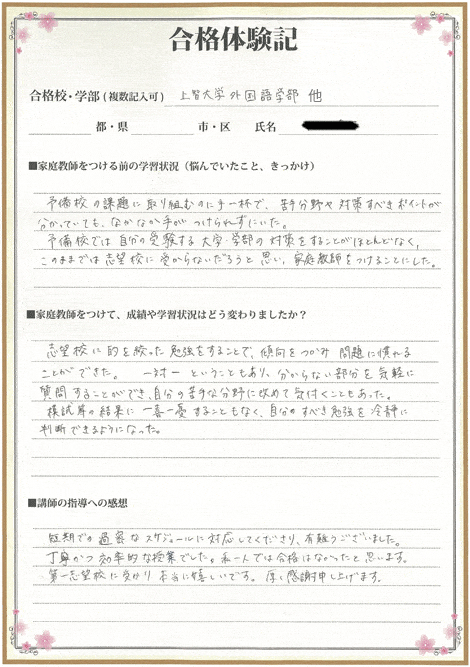 合格体験記
合格校・学部(複数記入可) 上智大学外国語学部 他
都・県 市・区 氏名
■家庭教師をつける前の学習状況(悩んでいたこと、きっかけ)
予備校の課題に取り組むのに手一杯で、苦手分野や対策すべきポイントが
分かっていても、なかなか手がつけられずにいた。
予備校では自分の受験する大学・学部の対策をすることがほとんどなく、
このままでは志望校に受からないだろうと思い、家庭教師をつけることにした。
■家庭教師をつけて、成績や学習状況はどう変わりましたか?
志望校に的を絞った勉強をすることで、傾向をつかみ問題に慣れる
ことができた。 一対一ということもあり、分からない部分を気軽に
質問することができ、自分の苦手な分野に改めて気付くこともあった。
模試等の結果に一喜一憂することもなく、自分のすべき勉強を冷静に
判断できるようになった。
■講師の指導への感想
短期での過密なスケジュールに対応してくださり、有難うございました。
丁寧かつ効率的な授業でした。私一人では合格はなかったと思います。
第一志望校に受かり本当に嬉しいです。厚く感謝申し上げます。